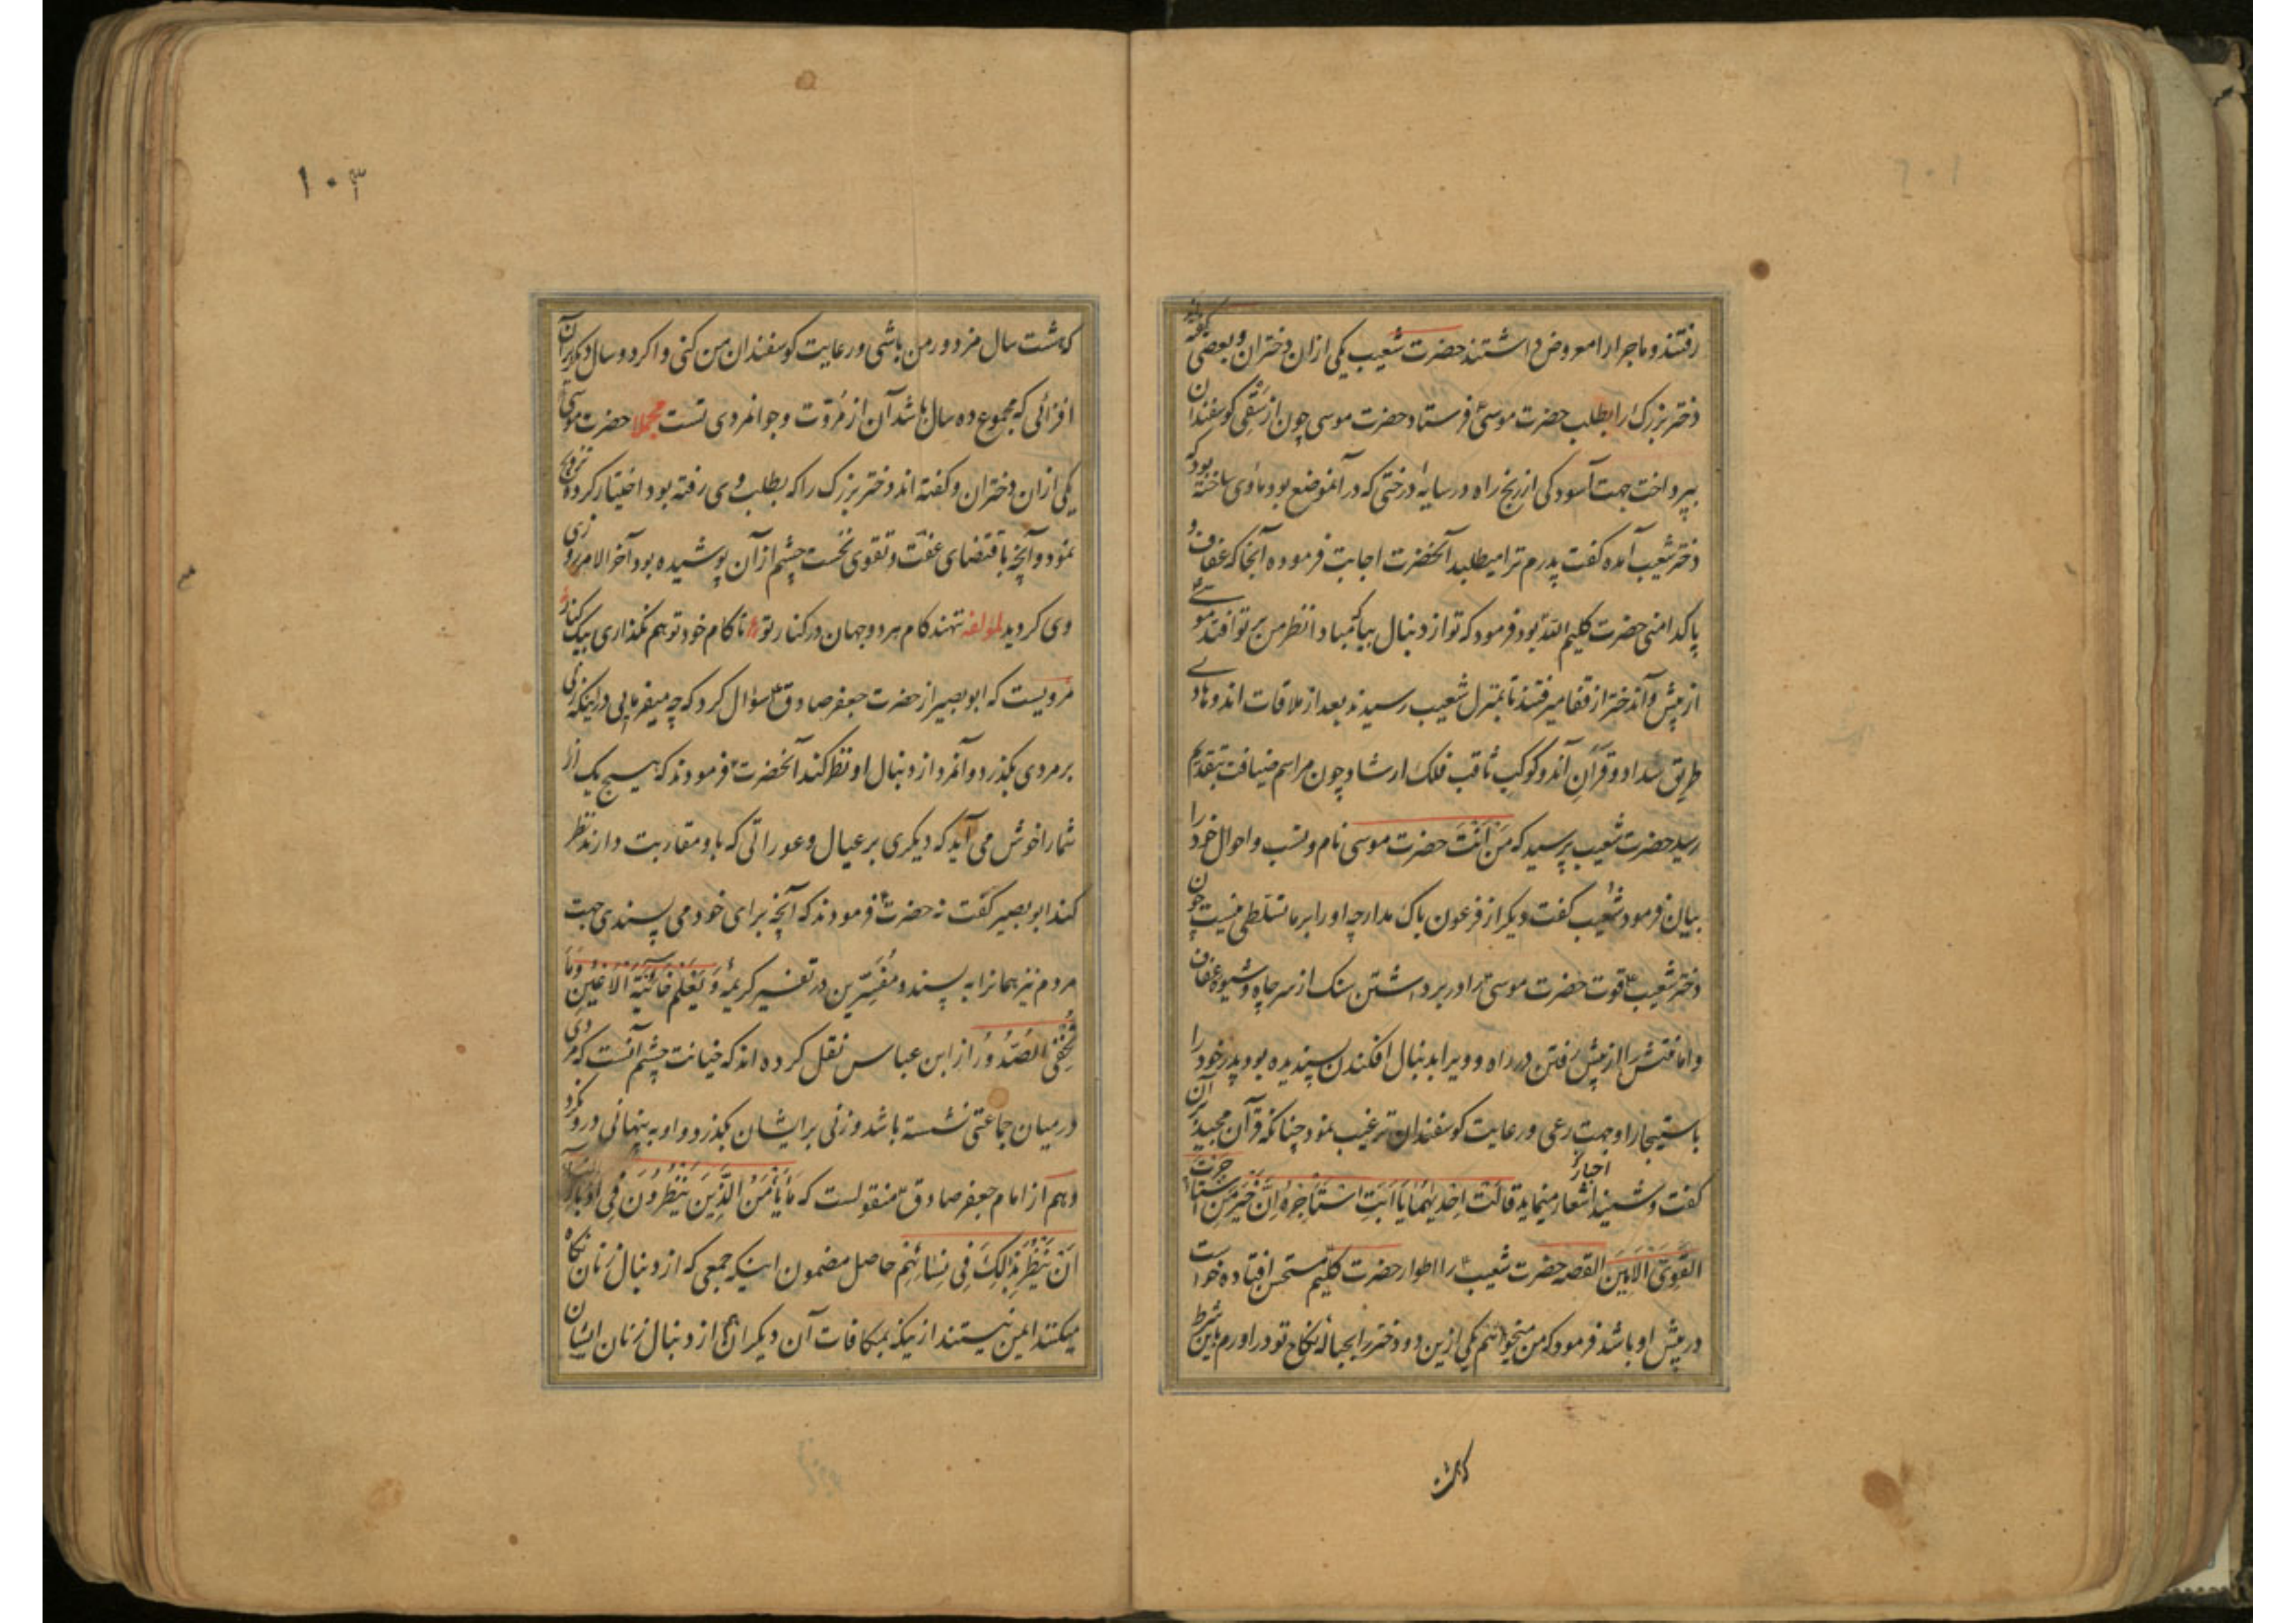 رفتند و ماجرا را معروض داشتند حضرت شعیب یکی از ان دختران و بعضی گفته‌اند
دختر بزرک را بطلب حضرت موسیٰ فرستاد حضرت موسی چون از سَقْیِ کوسفندان
بپرداخت جهت آسودکی از رنج راه در سایهٔ درختی که در آنموضع بود ماوی ساخته بود که
دختر شعیب آمده کفت پدرم ترا میطلبد آنحضرت اجابت فرموده آنجا که عفاف و
پاکدامنی حضرت کلیم الله بود فرمود که تو از دنبال بیا که مبادا نظر من بر تو افتد موسے
از پیش و آندختر از قفا میرفتند تا بمنزل شعیب رسیدند بعد از ملاقات اندو هادے
طریق سداد و قرآنِ آندو کوکب ثاقب فلک ارشاد چون مراسم ضیافت بتقدیم
رسید حضرت شعیب پرسید که مَنْ اَنْتَ حضرت موسی نام و نسب و احوال خود را
بیان فرمود شعیب کفت دیکر از فرعون باک مدار چه او را بر ما تسلطی نیست چون
دختر شعیبؑ قوت حضرت موسیؑ را در برداشتن سنک از سر چاه و شیوه عفاف
و امانتش را از پیش رفتن در راه و ویرا بدنبال افکندن پسندیده بود پدر خود را
باستیجار او جهت رعی و رعایت کوسفندان ترغیب نمود چنانکه قرآن مجید بر آن
اخبار
کفت و شنید اشعار مینماید قالَتْ اِحْدیٰهُمٰا یٰا اَبَتِ اسْتَأْجِرْهُ اِنَّ خَیْرَ مَنِ اسْتَأْجَرْتَ
القَوِیُّ الاَمینَ القصه حضرت شعیبؑ را اطوار حضرت کلیم مستحسن افتاده خواست
در پیش او باشد فرمود که من میخواهم یکی ازین دو دختر بحبالهٔ نکاح تو در اورم باین شرط
که هشت
۱۰۳
که هشت سال مزدور من باشی و رعایت کوسفندان من کنی و اکر دو سال دیکر بر آن
افزائی که مجموع ده سال باشد آن از مُروّت و جوانمردی تست مجملا حضرت موسی
یکی از ان دختران و کفته اند دختر بزرک را که بطلب وی رفته بود اختیار کرده تزویج
نمود و آنچه باقتضای عفّت و تقوی نخست چشم از آن پوشیده بود آخر الامر روزی
وی کردید لمؤلفه نهند کام هر دو جهان در کنار تو تا کام خود تو هم نکذاری بیک کنار
مرویست که ابو بصیر از حضرت جعفر صادقؑ سؤال کرد که چه میفرمایی در اینکه زنی
بر مردی بکذرد و آنمرد از دنبال او نظر کند آنحضرتؑ فرمودند که هیچ یک از
شما را خوش می آید که دیکری بر عیال و عوراتی که باو مقاربت دارند نظر
کند ابو بصیر کفت نه حضرتؑ فرمودند که آنچه برای خود می پسندی جهت
مردم نیز همانرا به پسند و مُفَسِّرین در تفسیر کریمهٔ وَ یَعْلَمُ خٰائِنَةَ الْاَعْیُنِ وَ مٰا
تُخْفِی الصُّدُورُ از ابن عباس نقل کرده اند که خیانت چشم آنست که مردی
در میان جماعتی نشسته باشد و زنی بر ایشان بکذرد و او به پنهانی در و نکرد
و هم از امام جعفر صادقؑ منقولست که مٰا یَأْمَنُ الَّذِینَ یَنْظُرُونَ فِی اَدْبٰارِ
اَنْ یُنْظَرَ بِذٰلِکَ فِی نِسٰائِهِمْ حاصل مضمون اینکه جمعی که از دنبال زنان نکاه
میکنند ایمن نیستند از ینکه بمکافات آن دیکران از دنبال زنان ایشان